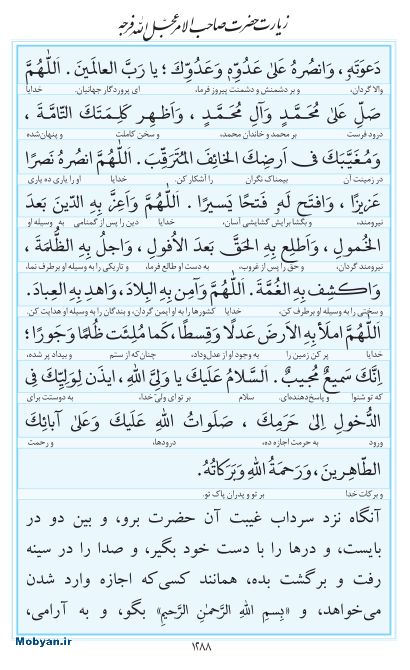 زیارت حضرت صاحب الامر عجل الله فرجه
دَعوَتَهِ ، وَانصُرهُ عَلىٰ عَدُوِّهٖ وَعَدُوِّكَ ؛ يا رَبَّ العالَمينَ . اَللّٰهُمَّ
والا گردان، و بر دشمنش و دشمنت پیروز فرما، ای پروردگار جهانیان. خدایا
صَلِّ عَلىٰ مُحَمَّدٍ وَآلِ مُحَمَّدٍ ، وَاَظهِر كَلِمَتَكَ التّامَّةَ ،
درود فرست بر محمد و خاندان محمد، و سخن کاملت و پنهان‌شده
وَمُغَيَّبَكَ فى اَرضِكَ الخائِفَ المُتَرَقِّبَ . اَللّٰهُمَّ انصُرهُ نَصرًا
در زمینت آن بیمناک نگران را آشکار کن. خدایا او را یاری ده یاری
عَزيزًا ، وَافتَح لَهُ فَتحًا يَسيرًا . اَللّٰهُمَّ وَاَعِزَّ بِهِ الدّينَ بَعدَ
نیرومند، و بگشا برایش گشایشی آسان، خدایا دین را پس از گمنامی به وسیله او
الخُمولِ ، وَاَطلِع بِهِ الحَقَّ بَعدَ الاُفولِ ، وَاجلُ بِهِ الظُّلمَةَ ،
نیرومند گردان، و حق را پس از غروب، به دست او طالع فرما، و تاریکی را به وسیله او برطرف نما،
وَاكشِف بِهِ الغُمَّةَ . اَللّٰهُمَّ وَآمِن بِهِ البِلادَ ، وَاهدِ بِهِ العِبادَ .
و سختی را به وسیله او برطرف کن، خدایا کشورها را به او ایمن گردان، و بندگان را به وسیله او هدایت کن.
اَللّٰهُمَّ املَأ بِهِ الاَرضَ عَدلًا وَقِسطًا ، كَما مُلِئَت ظُلمًا وَجَورًا ؛
خدایا پر کن زمین را به وجود او از عدل‌وداد، چنان‌که از ستم و بیداد پر شده،
اِنَّكَ سَميعٌ مُجيبٌ . اَلسَّلامُ عَلَيكَ يا وَلِىَّ اللهِ ، ايذَن لِوَلِيِّكَ فِى
که تو شنوا و پاسخ‌دهنده‌ای. سلام بر تو ای ولیّ خدا، به دوستت برای
الدُّخولِ اِلىٰ حَرَمِكَ ، صَلَواتُ اللهِ عَلَيكَ وَعَلىٰ آبائِكَ
ورود به حرمت اجازه ده، درودها، و رحمت
الطّاهِرينَ ، وَرَحمَةُ اللهِ وَبَرَكاتُهُ.
و برکات خدا بر تو و پدران پاک تو.
آنگاه نزد سرداب غیبت آن حضرت برو، و بین دو در
بایست، و درها را با دست خود بگیر، و صدا را در سینه
رفت و برگشت بده، همانند کسی‌که اجازه وارد شدن
می‌خواهد، و «بِسمِ اللهِ الرَّحمٰنِ الرَّحیمِ» بگو، و به آرامی،
Mobyan.ir
۱۲۸۸